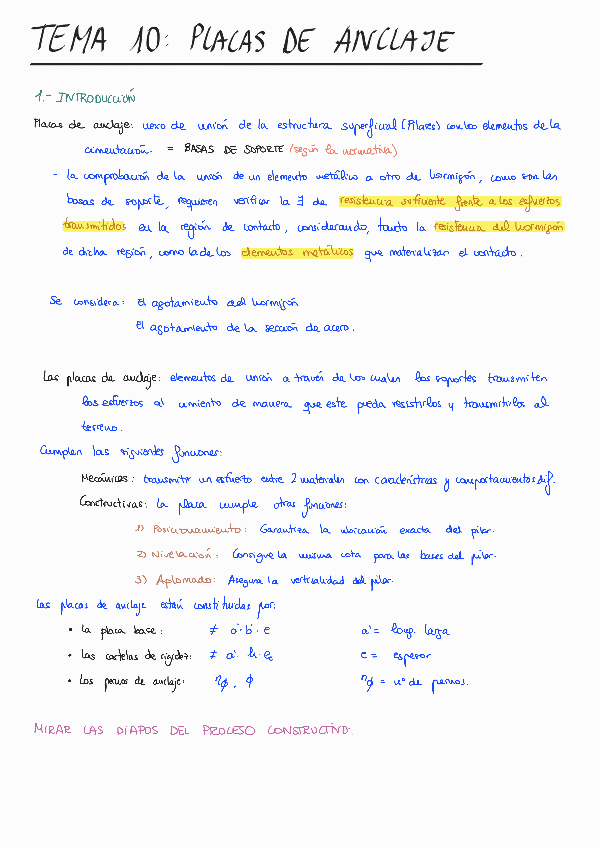 TEMA 10: PLACAS DE ANCLAJE
1.- INTRODUCCIÓN
Placas de anclaje: nexo de unión de la estructura superficial (Pilares) con los elementos de la
cimentación. = BASAS DE SOPORTE (según la normativa)
- la comprobación de la unión de un elemento metálico a otro de hormigón, como son las
basas de soporte, requieren verificar la ∃ de resistencia suficiente frente a los esfuerzos
transmitidos en la región de contacto, considerando, tanto la resistencia del hormigón
de dicha región, como la de los elementos metálicos que materializan el contacto.
Se considera: El agotamiento del hormigón
El agotamiento de la sección de acero.
Las placas de anclaje: elementos de unión a través de los cuales los soportes transmiten
los esfuerzos al cimiento de manera que este pueda resistirlos y transmitirlos al
terreno.
Cumplen las siguientes funciones:
Mecánicas: transmitir un esfuerzo entre 2 materiales con características y comportamientos dif.
Constructivas: la placa cumple otras funciones:
1) Posicionamiento: Garantiza la ubicación exacta del pilar.
2) Nivelación: Consigue la misma cota para las bases del pilar.
3) Aplomado: Asegura la verticalidad del pilar.
Las placas de anclaje están constituidas por:
• La placa base: ≠ a'· b'· e a' = long. larga
• Las cartelas de rigidez: ≠ a'· h · e_c e = espesor
• Los pernos de anclaje: nϕ, ϕ nϕ = nº de pernos.
MIRAR LAS DIAPOS DEL PROCESO CONSTRUCTIVO.